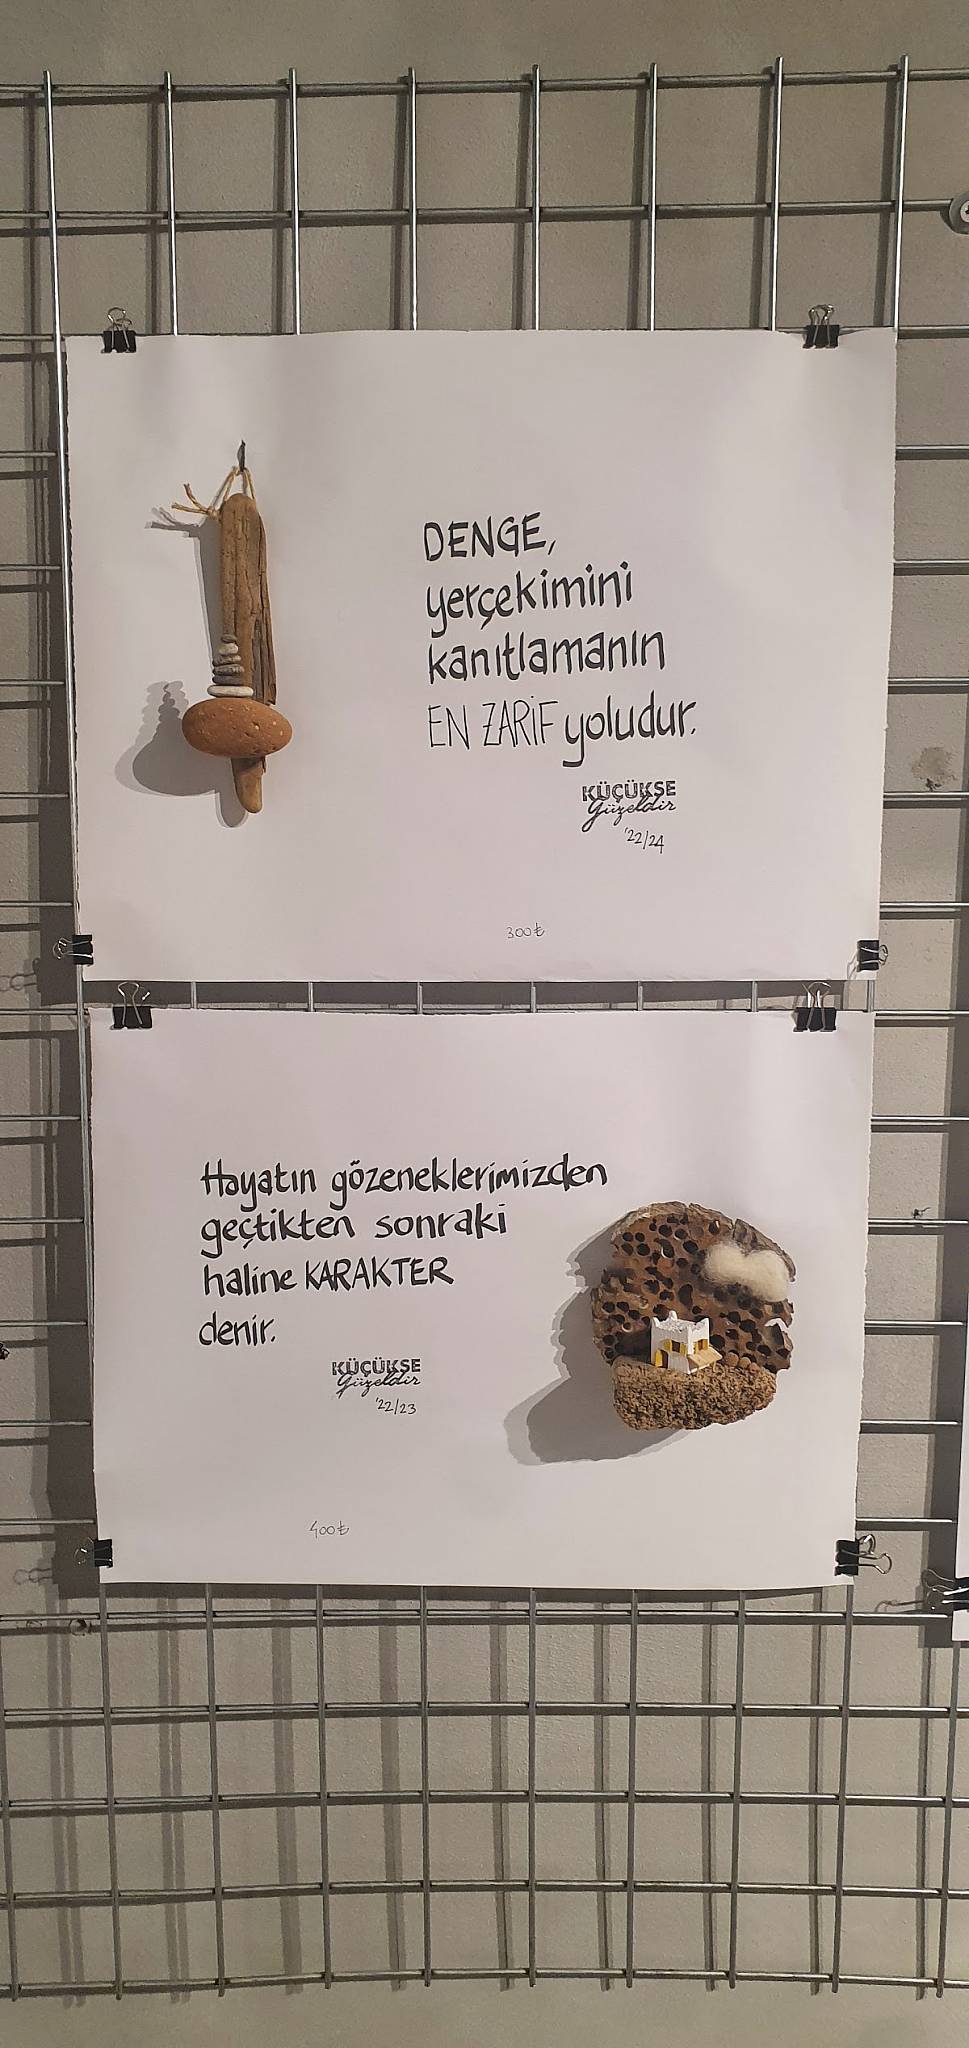 DENGE,
yerçekimini
kanıtlamanın
EN ZARİF yoludur.
KÜÇÜKSE
Güzeldir
'22/24
300₺
Hayatın gözeneklerimizden
geçtikten sonraki
haline KARAKTER
denir.
KÜÇÜKSE
Güzeldir
'22/23
400₺